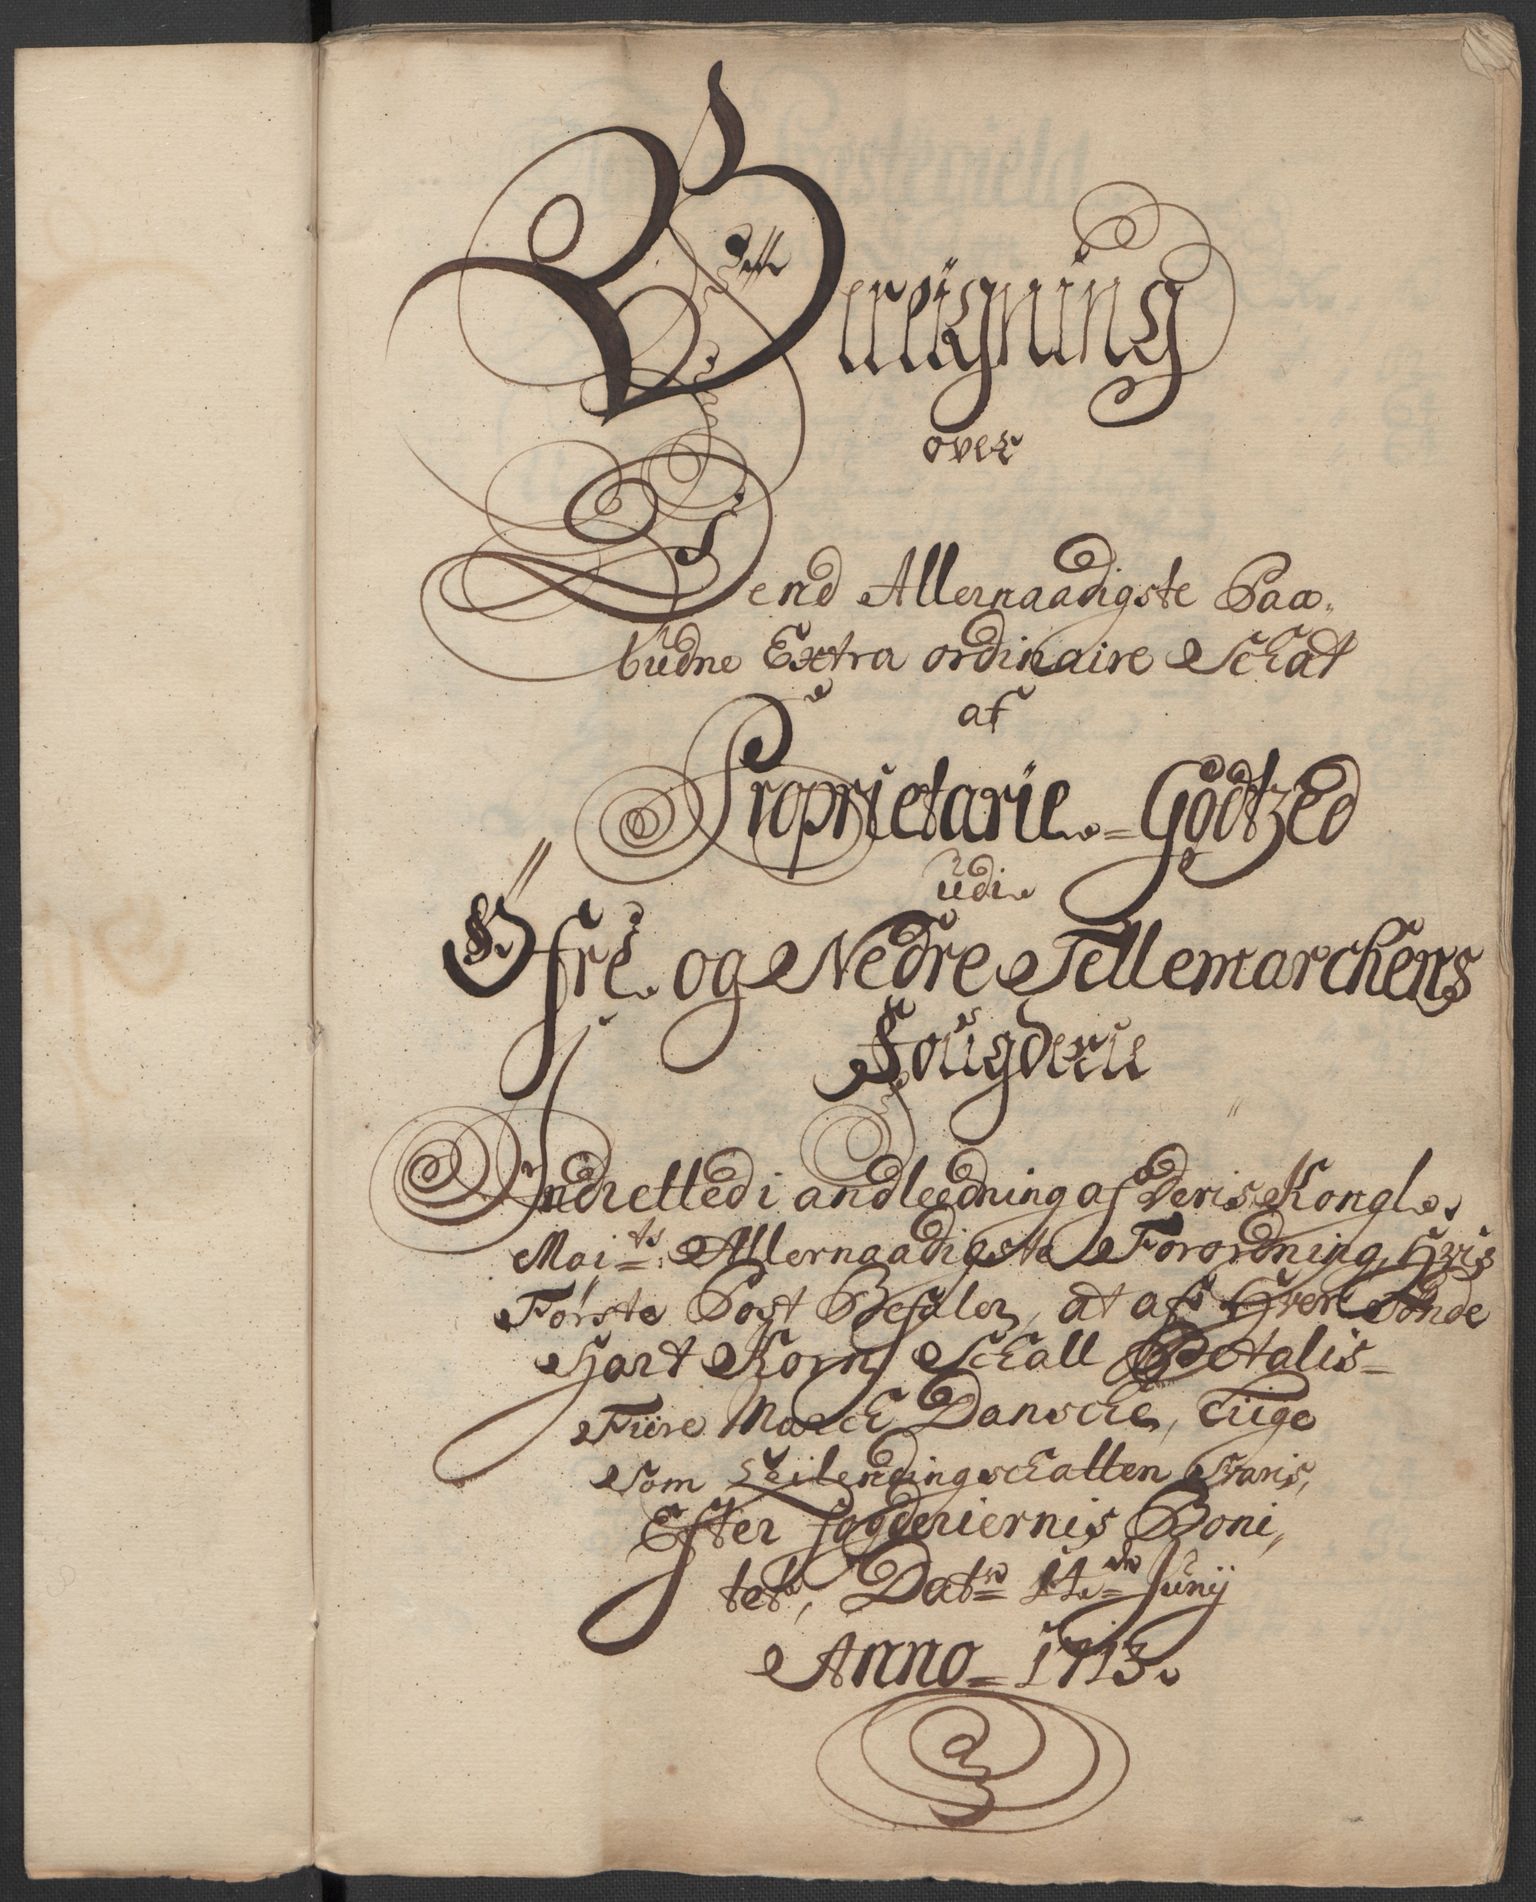 Bereigning
over
Dend Allernaadigste Paa-
budne Extra ordinaire Schat
af
Proprietarie = Gödtzed
udi
Öfre og Nedre Tellemarchens
Fougderie
Indretted i andleedning af Deris Kongl.
Maj:ts Allernaadigste Forordning, Hvis
Förste Post Befaler, at af Hver Tönde
Hart Korn Schall Betalis
Fiire March Dansche, Liige
Som Leilendingschatten Svaris,
Efter fogderiernis Boni,
tet, Dato 14de Junij
Anno 1713.